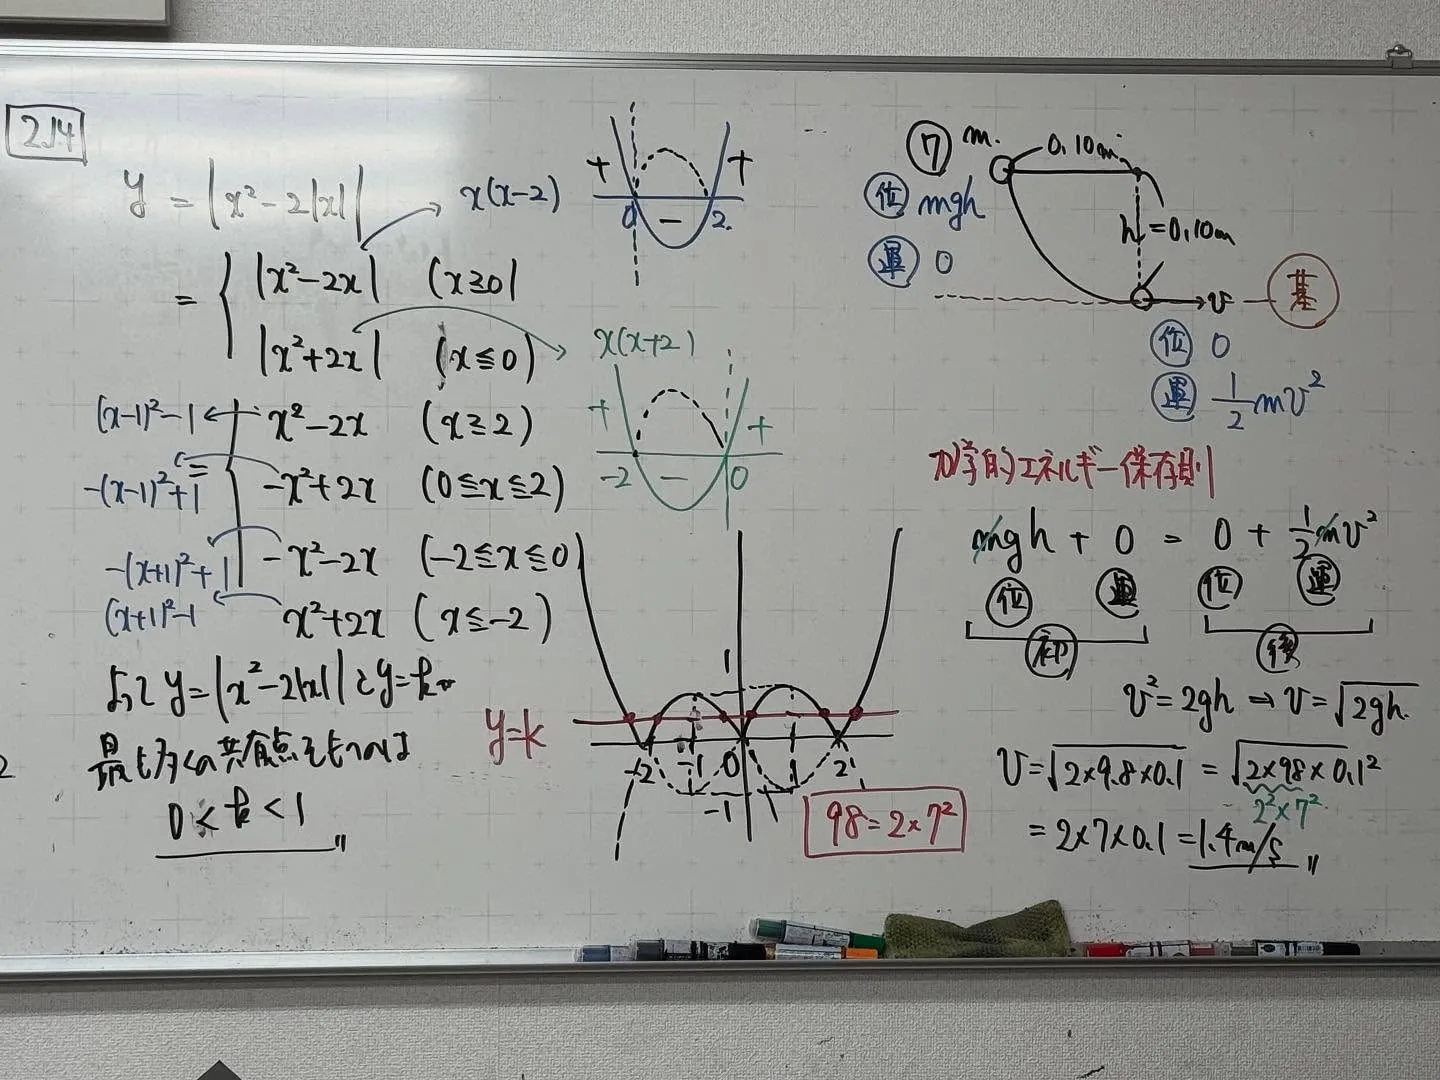 214
y = |x²-2|x||
x(x-2)
+ - +
0 2
= { |x²-2x| (x≧0)
|x²+2x| (x≦0)
x(x+2)
+ - +
-2 0
(x-1)²-1 ← x²-2x (x≧2)
-(x-1)²+1 = -x²+2x (0≦x≦2)
-(x+1)²+1 -x²-2x (-2≦x≦0)
(x+1)²-1 x²+2x (x≦-2)
よって y=|x²-2|x||とy=kが
最も多くの共有点をもつのは
0<k<1
y=k
1
-2 -1 0 1 2
-1
98=2×7²
⑦ m 0.10m
位 mgh
運 0
h=0.10m
v 基
位 0
運 1/2mv²
力学的エネルギー保存則
mgh + 0 = 0 + 1/2mv²
位 運 位 運
初 後
v²=2gh → v=√2gh
v=√2×9.8×0.1 = √2×98×0.1²
2²×7²
=2×7×0.1=1.4m/s